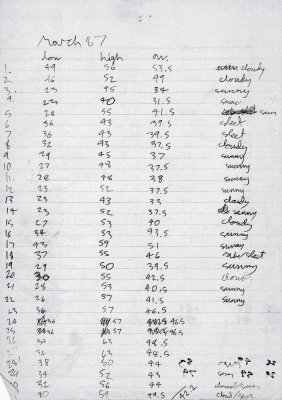 March 87
low high av.
1. 49 56 53.5 cloudy
2. 46 52 49 cloudy
3. 23 45 34 sunny
4. 23 40 31.5
5. 28 55 41.5 sun
6 36 43 39.5 sleet
7 36 43 39.5 sleet
8 32 43 37.5 cloudy
9 29 45 37 sunny
10 27 48 37.5 sunny
11 28 48 38 sunny
12 23 52 37.5 sunny
13 23 43 33 cloudy
14 23 52 37.5 sunny
15 27 53 40 cloudy
16 34 53 43.5 sunny
17 43 59 51 sunny
18 37 55 46
19 29 50 39.5 sunny
20 30 55 42.5 cloud
21 28 53 40.5 sunny
22 26 57 41.5 sunny
23 36 57 46.5
24 36 57 46.5
63 48.5
63 48.5
38 50 44 rain
34 52 43 sun
32 56 44 cloud/sun
40 59 49.5 cloud/sun